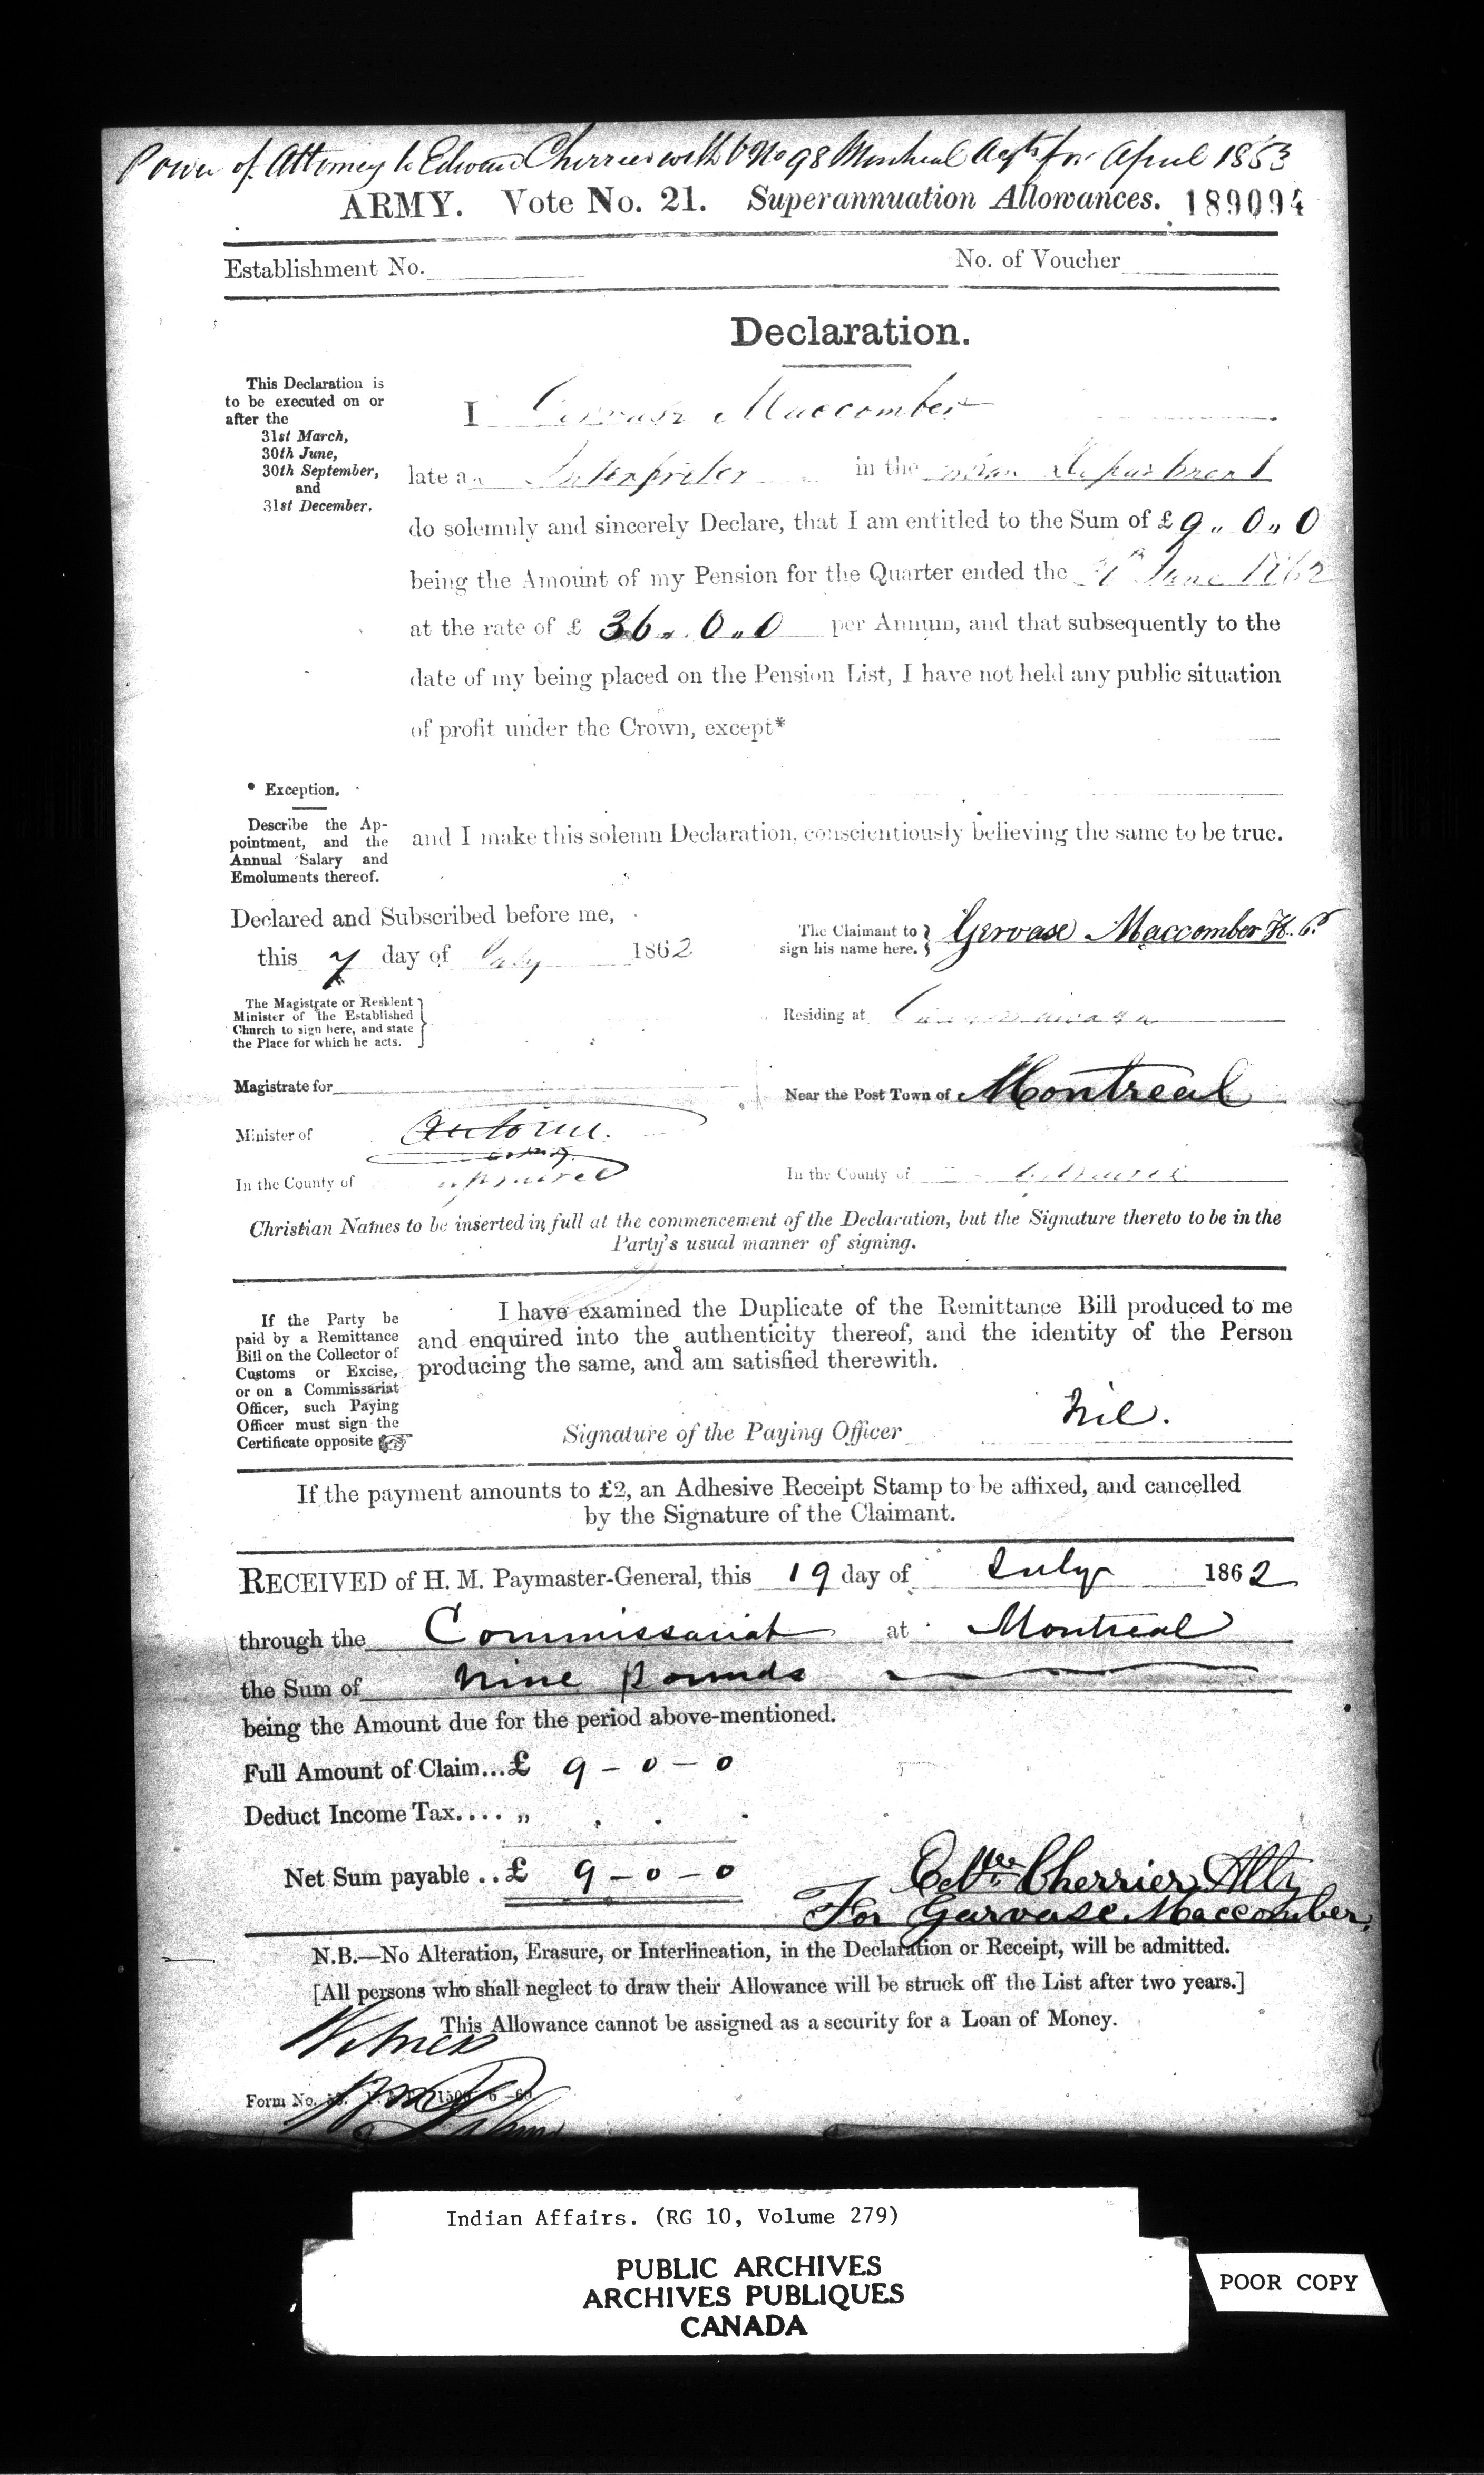 Power of Attorney to Edward Cherrier with V No 98 Montreal Accts for April 1853
ARMY. Vote No. 21. Superannuation Allowances. 189094
Establishment No. No. of Voucher
Declaration.
This Declaration is
to be executed on or
after the
31st March,
30th June,
30th September,
and
31st December.
I Gervase Maccomber
late an Interpreter in the Indian Department
do solemnly and sincerely Declare, that I am entitled to the Sum of £ 9 " 0 " 0
being the Amount of my Pension for the Quarter ended the June 1862
at the rate of £ 36 " 0 " 0 per Annum, and that subsequently to the
date of my being placed on the Pension List, I have not held any public situation
of profit under the Crown, except*
* Exception.
Describe the Ap-
pointment, and the
Annual Salary and
Emoluments thereof.
and I make this solemn Declaration, conscientiously believing the same to be true.
Declared and Subscribed before me,
this 7 day of July 1862
The Claimant to
sign his name here. } Gervase Maccomber
The Magistrate or Resident
Minister of the Established
Church to sign here, and state
the Place for which he acts. }
Residing at
Magistrate for
Near the Post Town of Montreal
Minister of
In the County of
In the County of
Christian Names to be inserted in full at the commencement of the Declaration, but the Signature thereto to be in the
Party's usual manner of signing.
If the Party be
paid by a Remittance
Bill on the Collector of
Customs or Excise,
or on a Commissariat
Officer, such Paying
Officer must sign the
Certificate opposite
I have examined the Duplicate of the Remittance Bill produced to me
and enquired into the authenticity thereof, and the identity of the Person
producing the same, and am satisfied therewith.
Signature of the Paying Officer Nil.
If the payment amounts to £2, an Adhesive Receipt Stamp to be affixed, and cancelled
by the Signature of the Claimant.
RECEIVED of H. M. Paymaster-General, this 19 day of July 1862
through the Commissariat at Montreal
the Sum of Nine Pounds
being the Amount due for the period above-mentioned.
Full Amount of Claim...£ 9 - 0 - 0
Deduct Income Tax.... „
Net Sum payable .. £ 9 - 0 - 0
Cherrier Atty
For Garvase Maccomber.
N.B.—No Alteration, Erasure, or Interlineation, in the Declaration or Receipt, will be admitted.
[All persons who shall neglect to draw their Allowance will be struck off the List after two years.]
This Allowance cannot be assigned as a security for a Loan of Money.
Witness
Form No.
Indian Affairs. (RG 10, Volume 279)
PUBLIC ARCHIVES
ARCHIVES PUBLIQUES
CANADA
POOR COPY